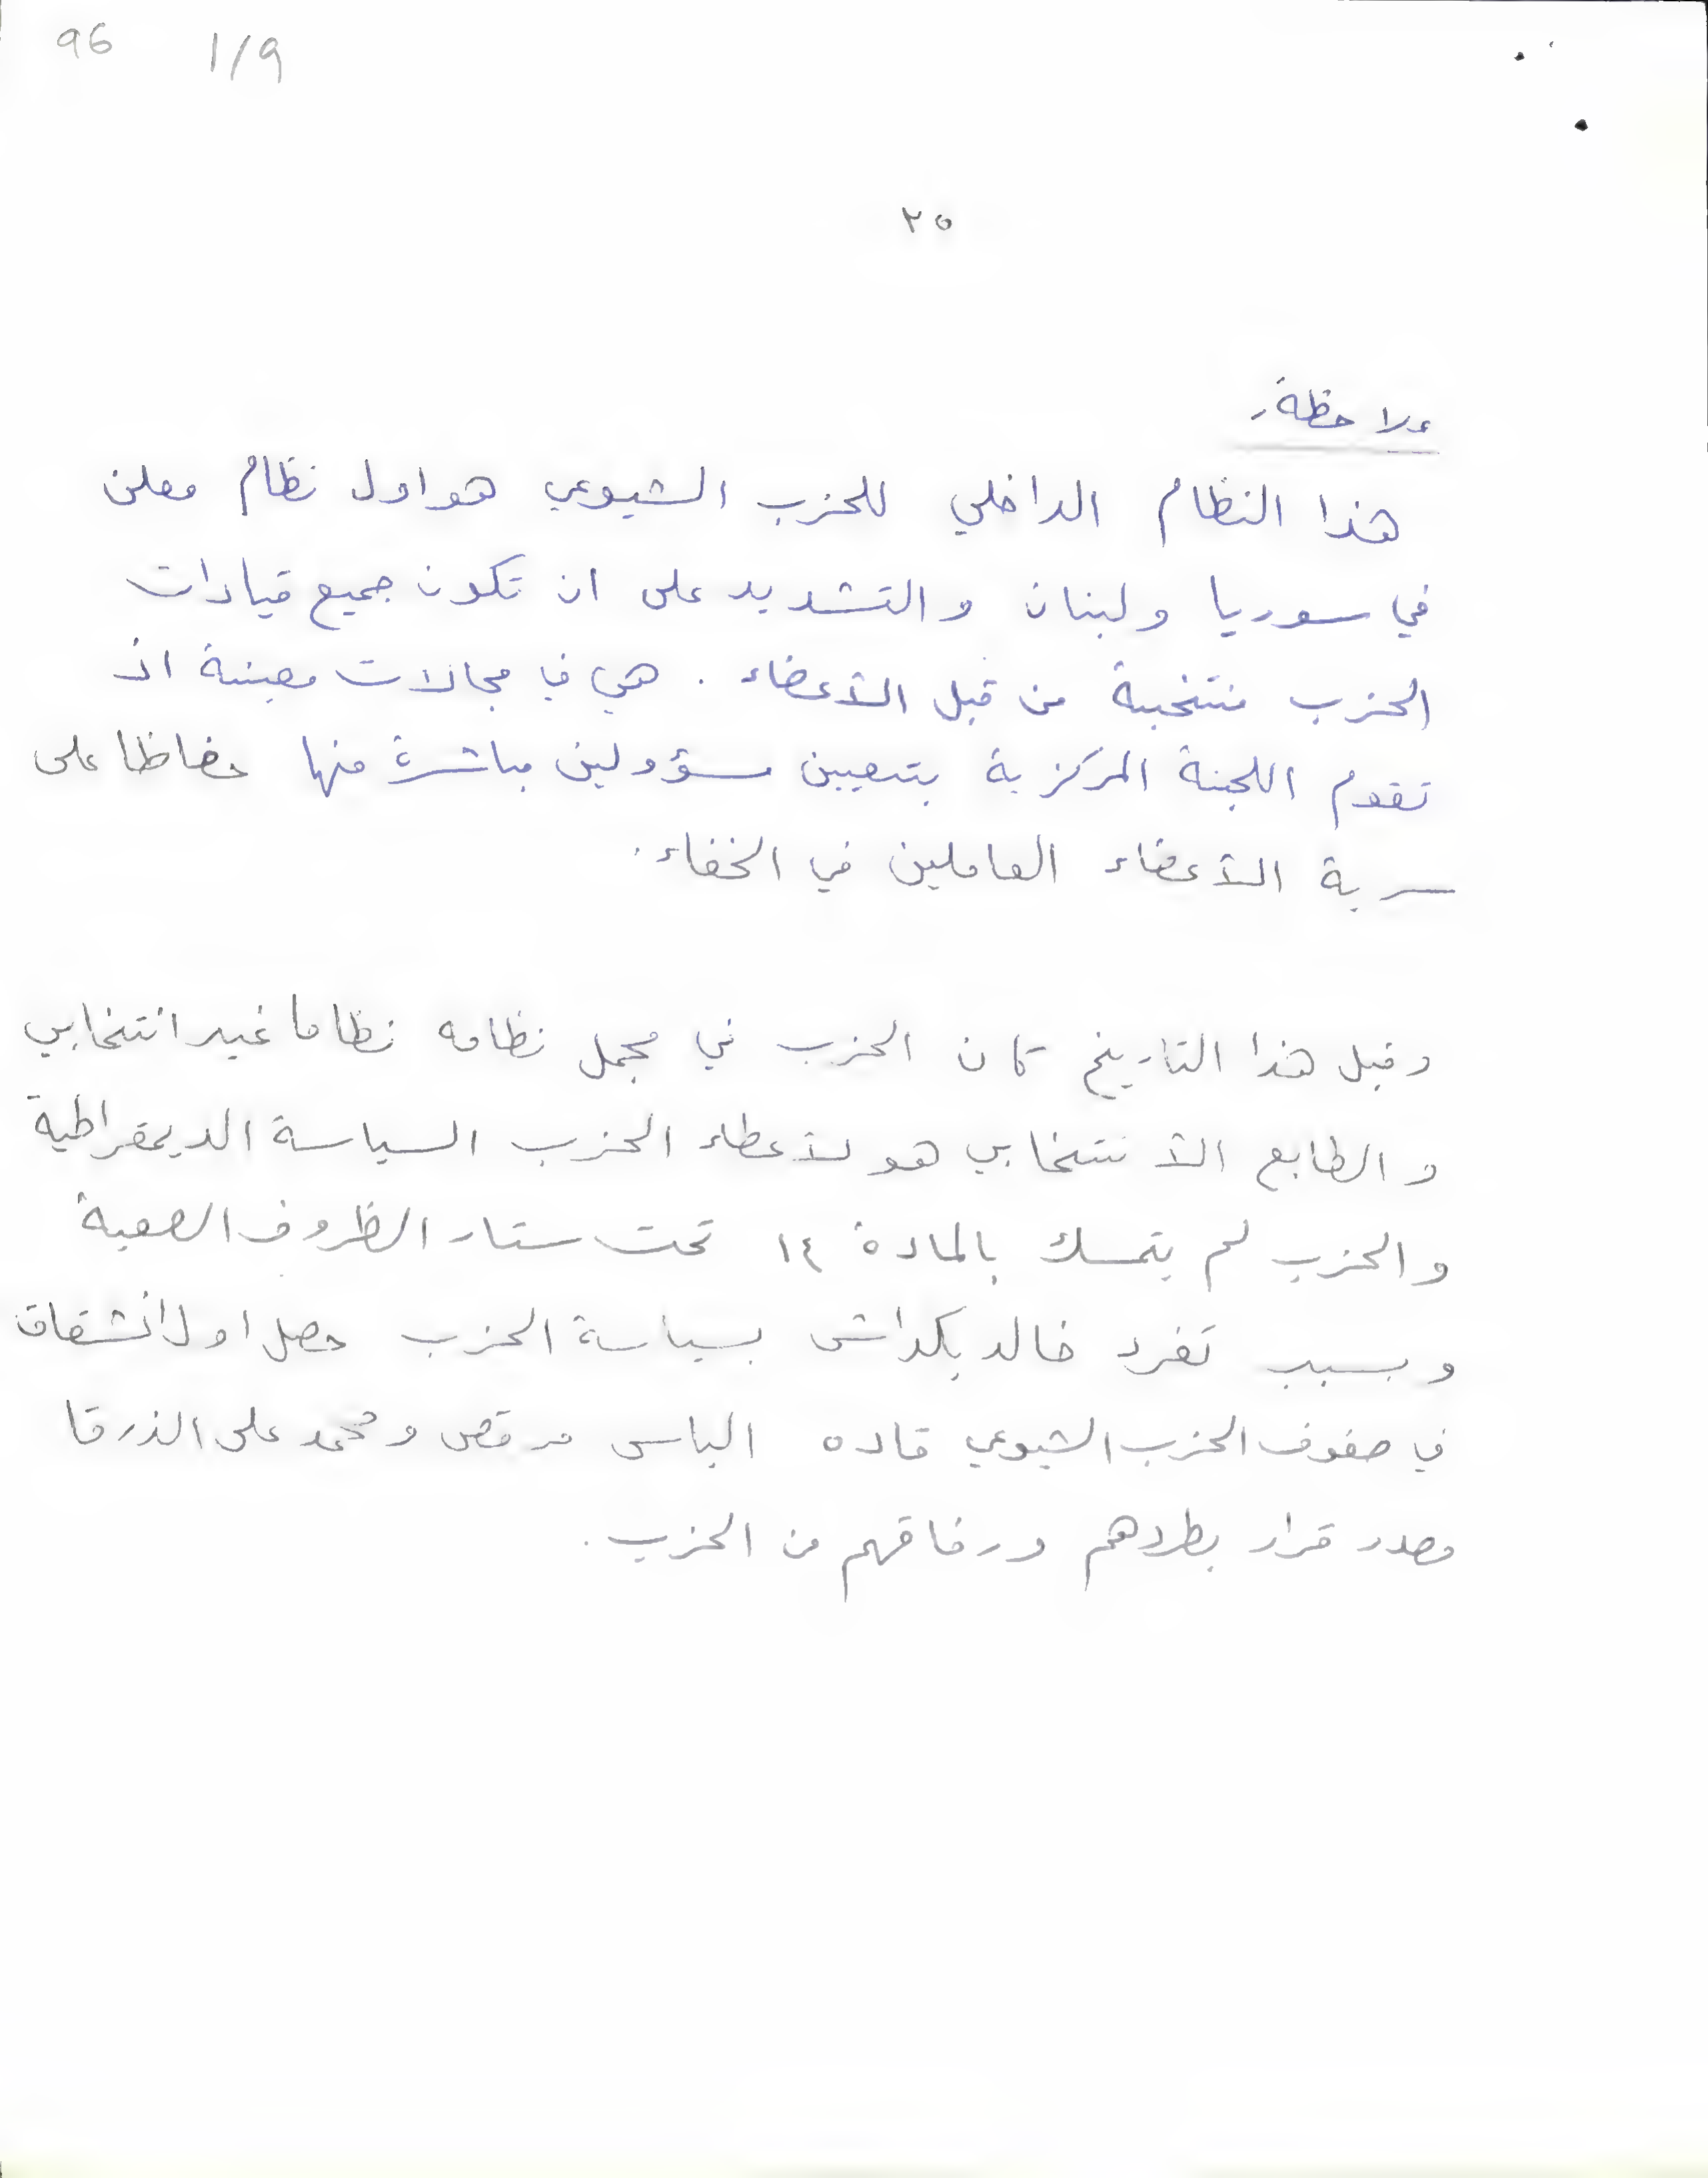 96 1/9
٢٥
ملاحظة،
هذا النظام الداخلي للحزب الشيوعي هو اول نظام معلن
في سوريا ولبنان والتشديد على ان تكون جميع قيادات
الحزب منتخبة من قبل الأعضاء. هي في مجالات معينة اذ
تقوم اللجنة المركزية بتعيين مسؤولين مباشرة منها حفاظا على
سرية الأعضاء العاملين في الخفاء.
وقبل هذا التاريخ كان الحزب في مجمل نظامه نظاما غير انتخابي
والطابع الأنتخابي هو لأعطاء الحزب السياسة الديمقراطية
والحزب لم يتمسك بالمادة ١٤ تحت ستار الظروف الصعبة
وبسبب تفرد خالد بكداش بسياسة الحزب حصل اول انشقاق
في صفوف الحزب الشيوعي قاده الياس مرقص ومحمد على الزرقا
وصدر قرار بطردهم ورفاقهم من الحزب.